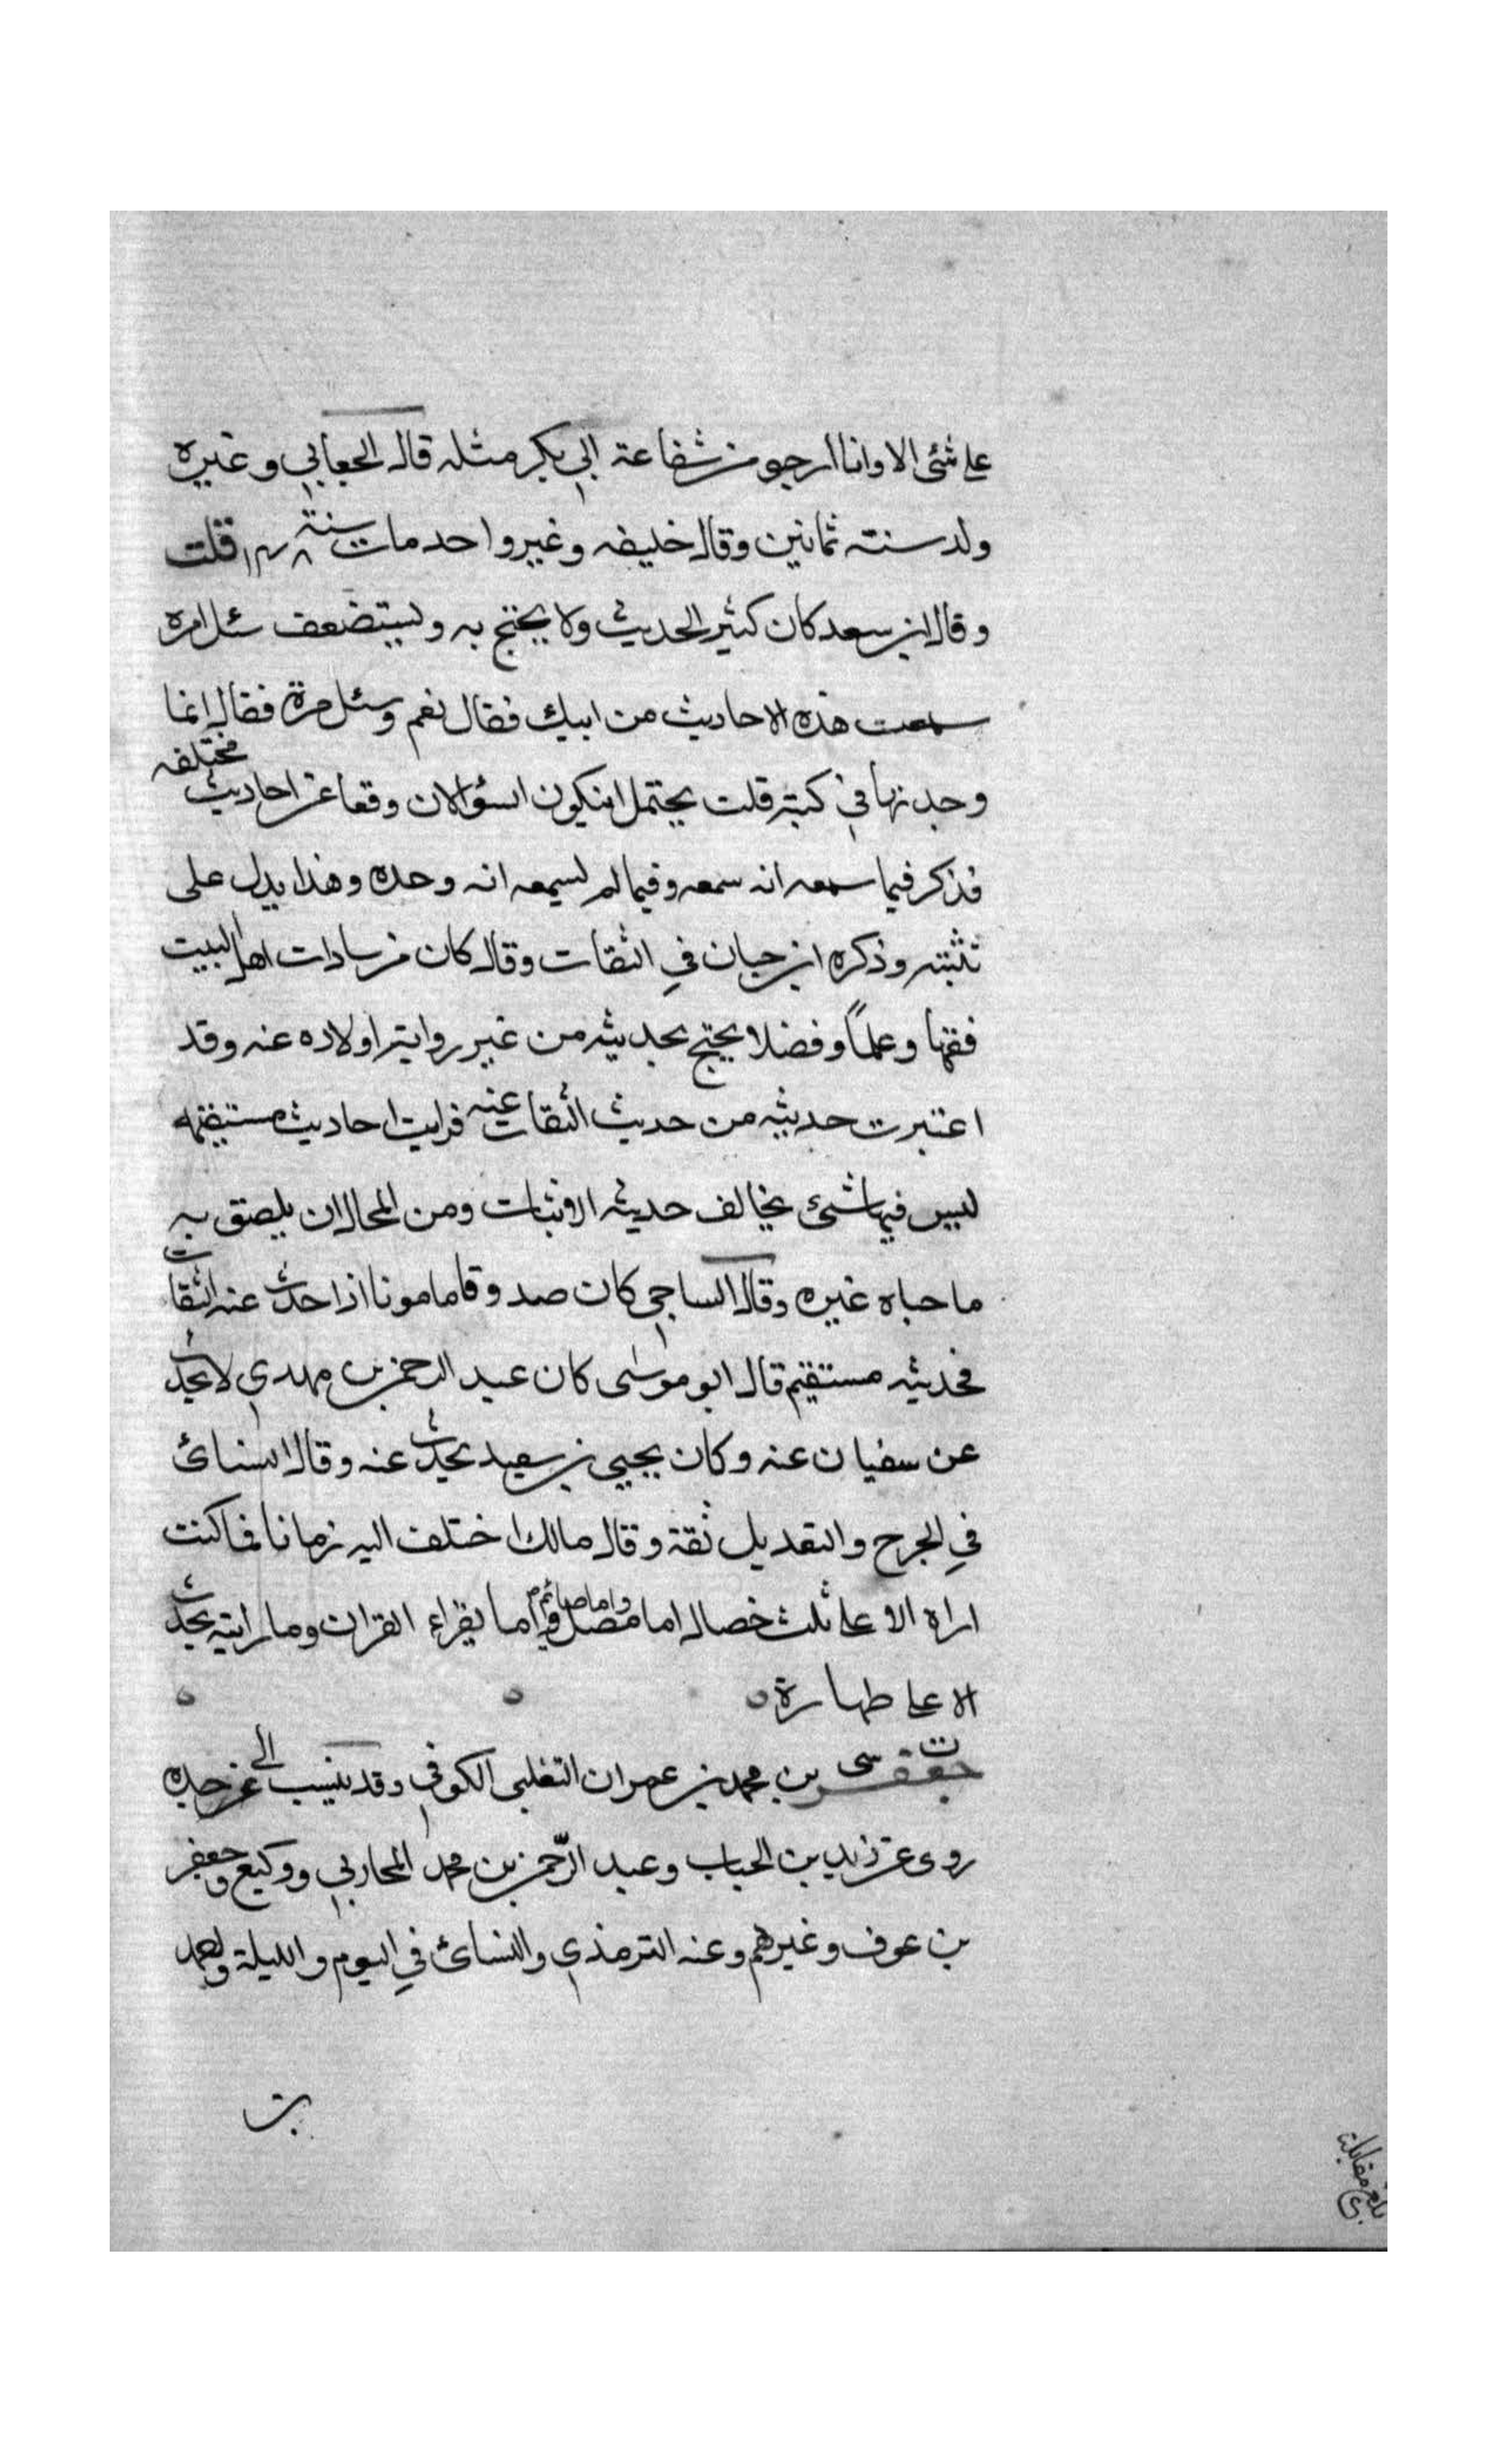 على شئ الا وانا ارجو من شفاعة ابي بكر مثله قال الجعابي وغيره
ولد سنته ثمانين وقال خليفه وغير واحد مات سنة ١٤٨ قلت
وقال ابن سعد كان كثير الحديث ولا يحتج به ويستضعف سئل مرة
سمعت هذه الاحاديث من ابيك فقال نعم وسئل مرة فقال انما
وجدتها في كتبه قلت يحتمل ان يكون السؤالان وقعا عن احاديث مختلفه
فذكر فيما سمعه انه سمعه وفيما لم يسمعه انه وحده وهذا يدل على
تثبته وذكره ابن حبان في الثقات وقال كان من سادات اهل البيت
فقها وعلماً وفضلا يحتج بحديثه من غير رواية اولاده عنه وقد
اعتبرت حديثه من حديث الثقات عنه فرايت احاديث مستقيمه
ليس فيها شئ يخالف حديث الاثبات ومن المحال ان يلصق به
ما حباه غيره وقال الساجي كان صدوقا مامونا اذا حدث عنه الثقات
فحديثه مستقيم قال ابو موسى كان عبد الرحمن بن مهدي لا يحدث
عن سفيان عنه وكان يحيى بن سعيد يحدث عنه وقال النسائ
في الجرح والتعديل ثقة وقال مالك اختلف اليه زمانا فما كنت
اراه الا على ثلث خصال اما مصل واما صائم واما يقراء القران وما رايته يحدث
الا على طهارة
ت سى جعفر بن محمد بن عمران التغلبي الكوفي وقد ينسب الى جده
روى عن زيد بن الحباب وعبد الرّحمن بن محمد المحاربي ووكيع وجعفر
بن عوف وغيرهم وعنه الترمذي والنسائ في اليوم والليلة
بلغ مقابلة